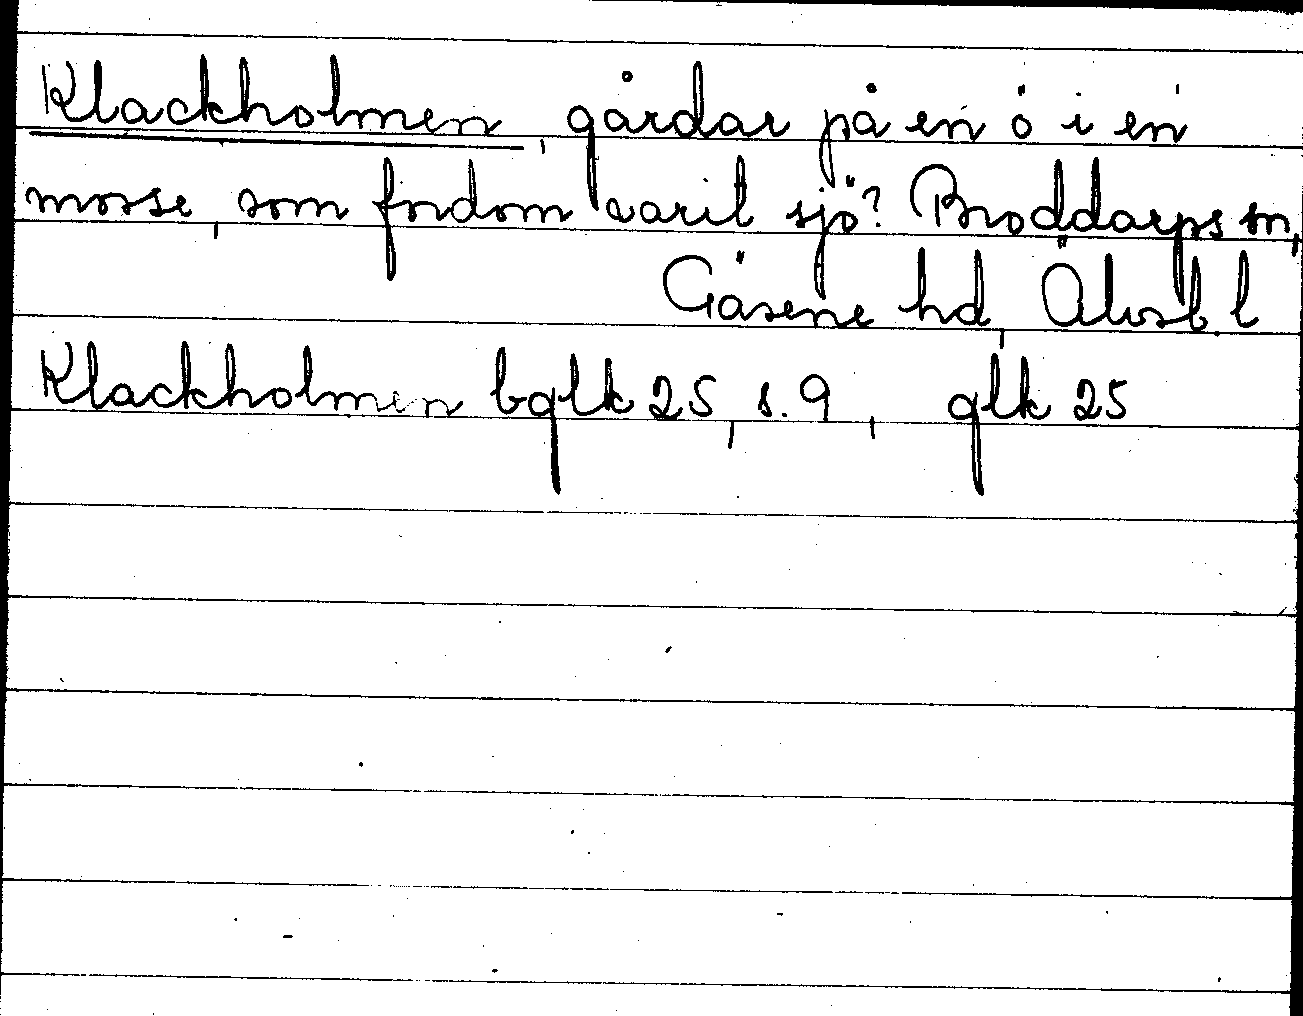 Klackholmen, gårdar på en ö i en
mosse, som fordom varit sjö? Broddarps sn,
Gäsene hd, Älvsb. l
Klackholmen bglk 25, s. 9, glk 25